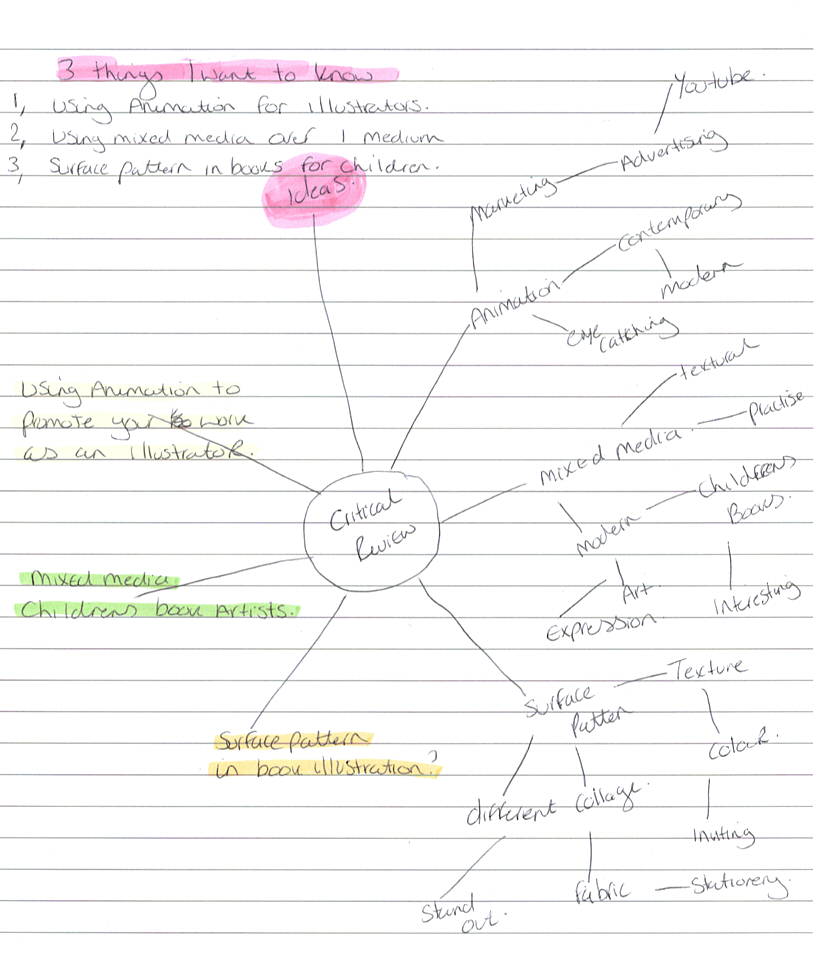 3 things I want to know
1, Using Animation for illustrators.
2, Using mixed media over 1 medium
3, Surface pattern in books for children.
Ideas.
Youtube.
Advertising
Marketing
Contemporary
Modern
Animation
eye
catching
Using Animation to
promote your work
as an illustrator.
textural
Practise
Mixed media.
Childrens
Books.
Modern
Art.
Expression.
Interesting
Critical
Review
Mixed media
Childrens book Artists.
Surface pattern
in book illustration?
Surface
Patten
Texture
Colour.
Inviting
different
Collage.
Stand
out.
Fabric
Stationery.